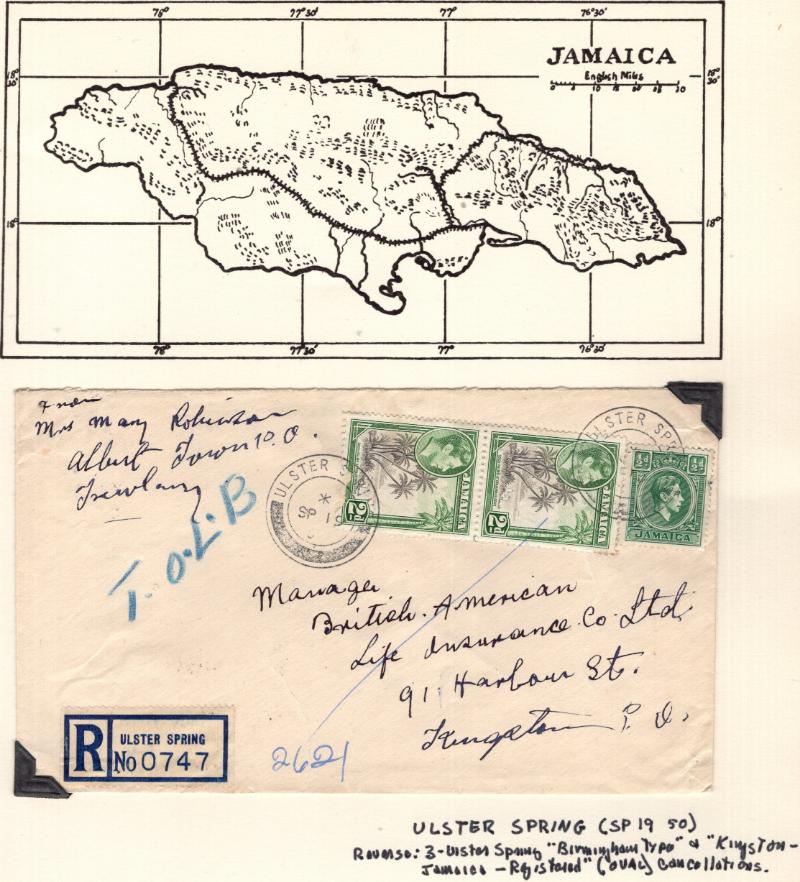 78° 77°30' 77° 76°30'
JAMAICA
English Miles
18°
30'
18°
30'
18°
18°
78° 77°30' 77° 76°30'
From
Mrs Mary Robinson
Albert Town P.O.
Trelawny
T.O.L.B
ULSTER SPRING
*
SP 19
JAMAICA
2D
JAMAICA
2D
ULSTER SPR
½d ½d
JAMAICA
Manager
British American
Life Insurance Co Ltd.
91 Harbour St.
Kingston P.O.
R
ULSTER SPRING
No 0747
2621
ULSTER SPRING (SP 19 50)
Reverse: 3-Ulster Spring "Birmingham Type" & "Kingston-
Jamaica - Registered" (OVAL) Cancellations.